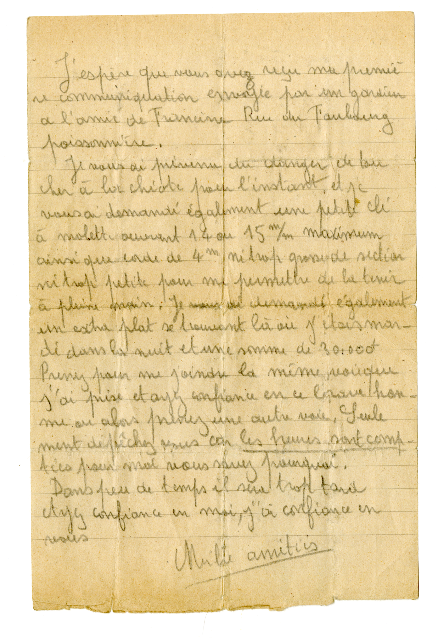 J'espère que vous avez reçu ma premiè
re communiquation envoyée par un gardien
a l'amie de Francine Rue du Faubourg
poissonnière.
Je vous ai prévenu du danger de tou
cher à la pour l'instant, et je
vous ai demandé également une petite clé
à molette ouvrant 14 ou 15 m/m maximum
ainsi que corde de 4m ni trop grosse de section
ni trop petite pour me permettre de la tenir
à pleine main. Je vous ai demandé également
un extra plat se trouvant là où j'étais
dans la nuit et une somme de 30.000f
Prenez pour me joindre la même voie que
j'ai prise et ayez confiance en ce brave hom-
me ou alors prenez une autre voie. Seule
ment dépêchez vous car les heures sont comp-
tées pour moi vous savez pourquoi.
Dans peu de temps il sera trop tard
etayez confiance en moi, j'ai confiance en
vous
Mille amitiés